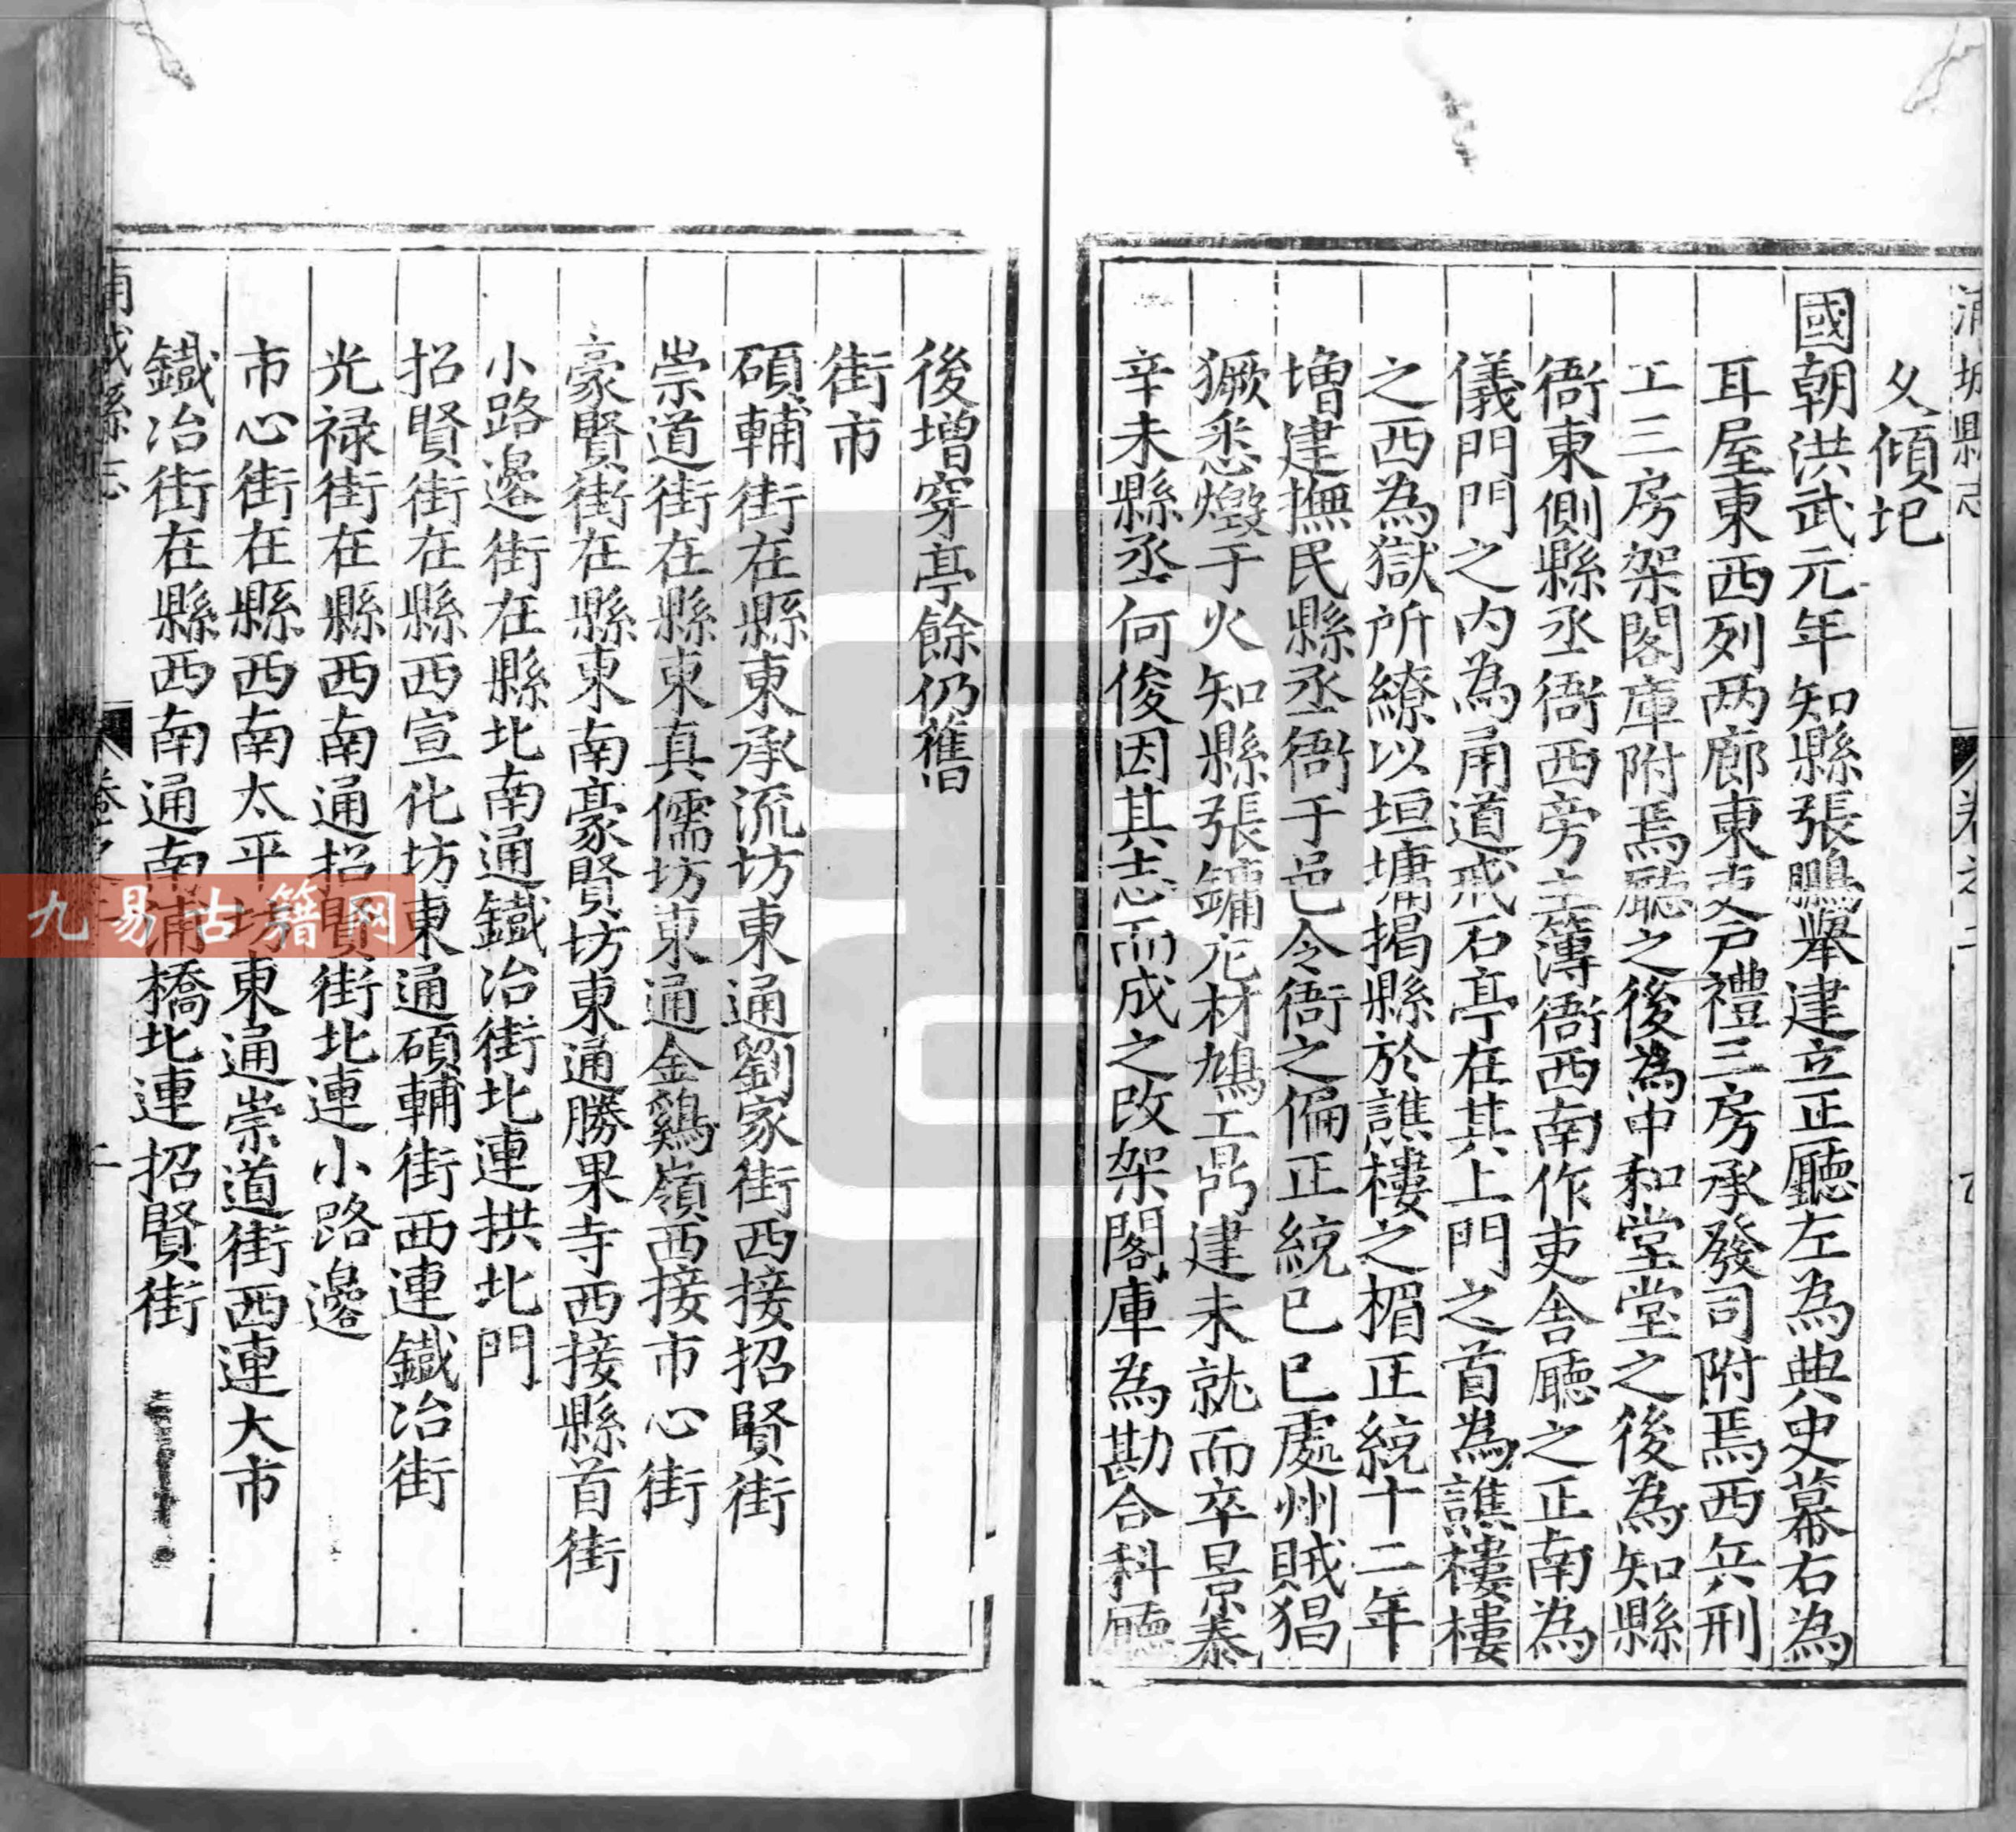 浦城縣志
夂傾圯
國朝洪武元年知縣張鵬舉建立正廳左為典史幕右為
耳屋東西列两廊東吏戸禮三房承發司附焉西兵刑
工三房架閣庫附焉廳之後為中和堂堂之後為知縣
衙東側縣丞衙西旁主簿衙西南作吏舍廳之正南為
儀門門之内為甬道戒石亭在其上門之首為譙樓樓
之西為獄所繚以垣墉揭縣於譙樓之楣正統十二年
增建撫民縣丞衙于邑令衙之偏正統己巳處州賊猖
獗悉燬于火知縣張鏞庀材鳩工鼎建未就而卒景泰
辛未縣丞何俊因其志而成之改架閣庫為勘合科廳
後增穿亭餘仍舊
街市
碩輔街在縣東承流坊東通劉家街西接招賢街
崇道街在縣東真儒坊東通金鷄嶺西接市心街
豪賢街在縣東南豪賢坊東通勝果寺西接縣首街
小路邊街在縣北南通鐵冶街北連拱北門
招賢街在縣西宣化坊東通碩輔街西連鐵冶街
光禄街在縣西南通招賢街北連小路邊
市心街在縣西南太平坊東通崇道街西連大市
鐵冶街在縣西南通南浦橋北連招賢街
九易古籍网